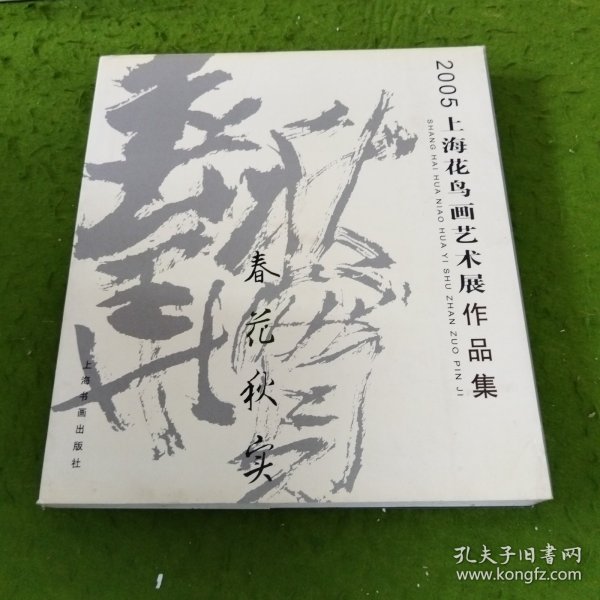 2005上海花鸟画艺术展作品集
SHANG HAI HUA NIAO HUA YI SHU ZHAN ZUO PIN JI
春花秋实
上海书画出版社
孔夫子旧书网
www.kongfz.com